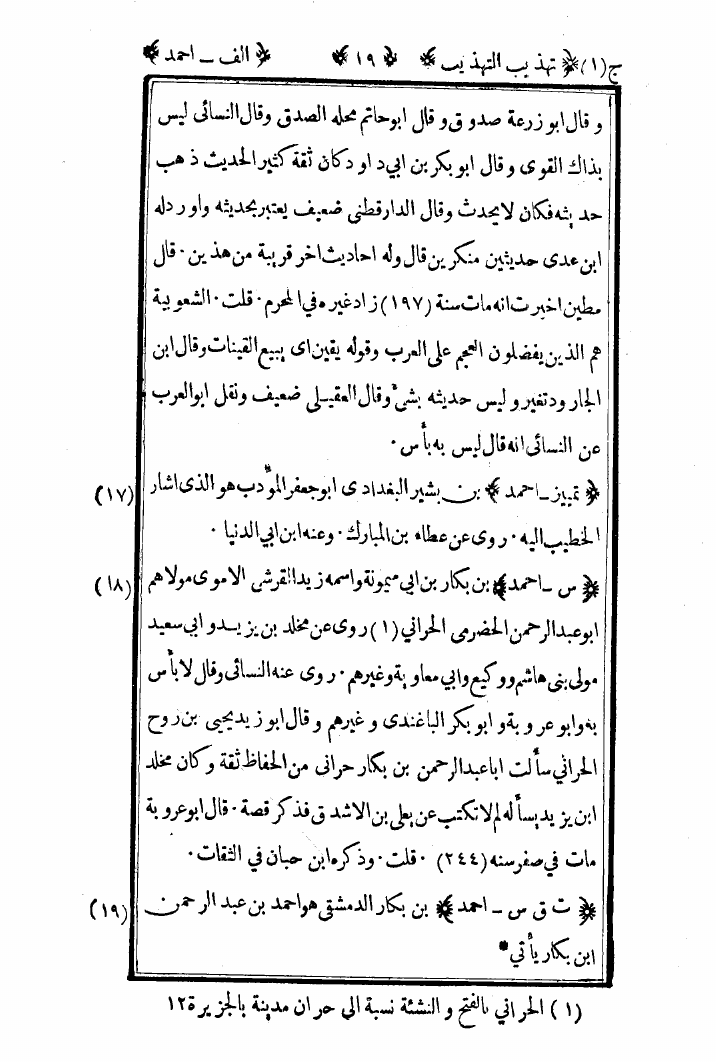 ج(١) ﴿تهذيب التهذيب﴾ ﴿١٩﴾ ﴿الف ـ احمد﴾
و قال ابو زرعة صدوق و قال ابو حاتم محله الصدق وقال النسائى ليس
بذاك القوى و قال ابو بكر بن ابي داود كان ثقة كثير الحديث ذهب
حديثه فكان لا يحدث وقال الدار قطنى ضعيف يعتبر بحديثه واورد له
ابن عدى حديثين منكرين قال وله احاديث اخر قريبة من هذين · قال
مطين اخبرت انه مات سنة (١٩٧) زاد غيره في المحرم · قلت · الشعوبية
هم الذين يفضلون العجم على العرب وقوله يقين اى يبيع القينات وقال ابن
الجارود تغير و ليس حديثه بشئ وقال العقيلى ضعيف ونقل ابو العرب
عن النسائى انه قال ليس به بأس ·
﴿ تمييز ـ احمد ﴾ بن بشير البغدادى ابو جعفر المؤدب هو الذى اشار (١٧)
الخطيب اليه · روى عن عطاء بن المبارك · وعنه ابن ابي الدنيا ·
﴿ س ـ احمد ﴾ بن بكار بن ابي ميمونة واسمه زيد القرشى الاموى مولاهم (١٨)
ابو عبد الرحمن الحضرمى الحراني (١) روى عن مخلد بن يزيد و ابي سعيد
مولى بنى هاشم ووكيع وابي معاوية وغيرهم · روى عنه النسائى وقال لا بأس
به وابو عروبة و ابو بكر الباغندى و غيرهم و قال ابو زيد يحيى بن روح
الحراني سألت ابا عبد الرحمن بن بكار حرانى من الحفاظ ثقة وكان مخلد
ابن يزيد يسأله لم لا تكتب عن يعلى بن الاشدق فذكر قصة · قال ابو عروبة
مات في صفر سنه (٢٤٤) · قلت · وذكره ابن حبان في الثقات ·
﴿ ت ق س ـ احمد ﴾ بن بكار الدمشقى هو احمد بن عبد الرحمن (١٩)
ابن بكار يأتي *
(١) الحراني بالفتح و النشئة نسبة الى حران مدينة بالجزيرة ١٢